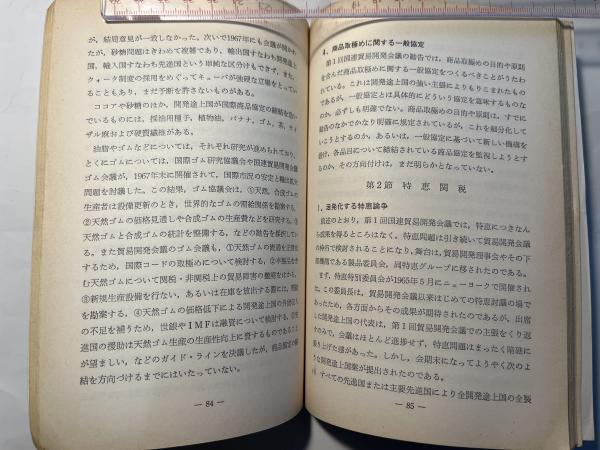 が、結局意見が一致しなかった。次いで1967年にも会議が開かれ
たが、砂糖問題はきわめて複雑であり、輸出国すなわち開発途上
国、輸入国すなわち先進国という単純な区分けもできず、また、
クォータ制度の採用をめぐってキューバが強硬な立場をとってい
こともあり、まだ予断を許さないものがある。
ココアや砂糖のほか、開発途上国が国際商品協定の締結を望ん
でいるものには、採油用種子、植物油、バナナ、ゴム、茶、サイ
ザル麻および硬質繊維がある。
油脂やゴムなどについては、それぞれ研究が進められており、
とくにゴムについては、国際ゴム研究協議会や国連貿易開発会議
ゴム会議が、1967年末に開催されて、国際市況の安定と輸出拡大
問題を討議した。この結果、ゴム協議会は、①天然、合成ゴム
の生産者は設備更新のとき、世界的なゴムの需給関係を勘案する、
②天然ゴムの価格見通しや合成ゴムの生産費などを研究する、③
天然ゴムと合成ゴムの統計を整備する、などの勧告を採択してい
る。また貿易開発会議のゴム会議も、①天然ゴムの流通を正常化
するため、国際コードの取極めについて検討する、②半製品を含
む天然ゴムについて関税・非関税上の貿易障害の撤廃をはかる、
③新規生産設備を行ない、あるいは在庫を放出する際には、問題
を勘案する、④天然ゴムの価格低下による開発途上国の外貨収入
の不足を補うため、世銀やIMFは融資について検討する、⑤先
進国の援助は天然ゴム生産の生産性向上に資するものであること
が望ましい、などのガイド・ラインを決議したが、商品協定の締
結を方向づけるまでにはいたっていない。
— 84 —
4. 商品取極めに関する一般協定
第1回国連貿易開発会議の勧告では、商品取極めの目的や原則
を含んだ商品取極めに関する一般協定をつくるべきことがうたわ
れている。これは開発途上国の強い主張によりもりこまれたもの
であるが、一般協定とは具体的にどういう協定を意味するものな
のか、必ずしも明確でない。商品取極めの目的や原則は、すでに
勧告のなかでかなり明確に規定されているが、これを細分化して
いこうとするのか、あるいは、一般協定に基づいて新しい機構を
設け、各品目について締結されている商品協定を監視しようとす
るのか、その方向付けは、まだ明らかとなっていない。
第2節 特恵関税
1. 活発化する特恵論争
前述のとおり、第1回国連貿易開発会議では、特恵につきなん
ら成果を得るところはなく、特恵問題は引き続いて貿易開発会議
の枠内で検討されることになり、舞台は、貿易開発理事会やその下
部機構である製品委員会、同特恵グループに移されたのである。
まず、特恵特別委員会が1965年5月にニューヨークで開催され
た。この委員会は、貿易開発会議以来はじめての特恵討議の場で
あったため、各方面からその成果が期待されたのであるが、出席
した開発途上国の代表は、第1回貿易開発会議での主張をくり返
すのみで、会議はほとんど進捗せず、特恵問題はまったく暗礁に
乗り上げた感があった。しかし、会期末になってようやく次のよ
うな開発途上国案が提出されたのである。
(i) すべての先進国または主要先進国により全開発途上国の全製
— 85 —